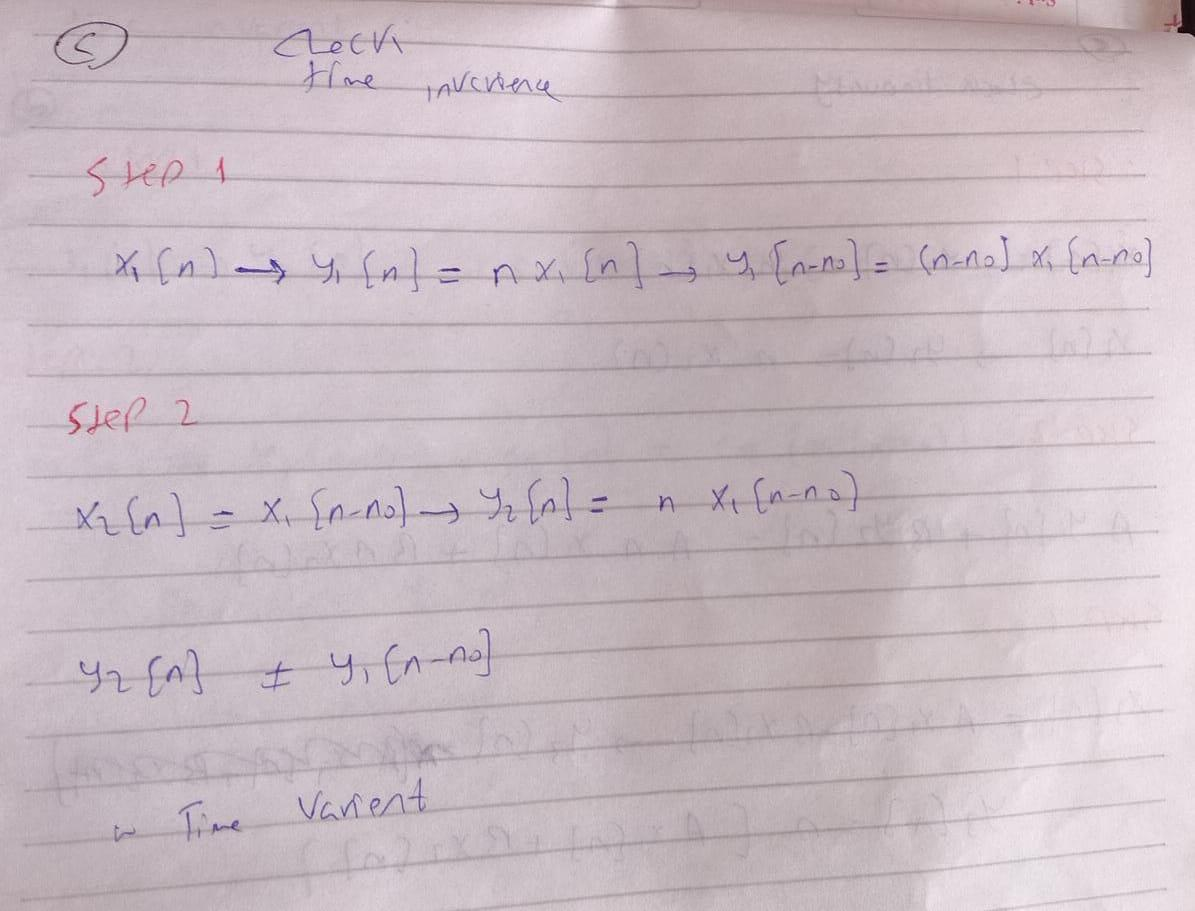 5 Check
time invarience
Step 1
x₁[n] → y₁[n] = n x₁[n] → y₁[n-n₀] = (n-n₀] x₁[n-n₀]
Step 2
x₂[n] = x₁[n-n₀] → y₂[n] = n x₁[n-n₀]
y₂[n] ≠ y₁[n-n₀]
Time Varient